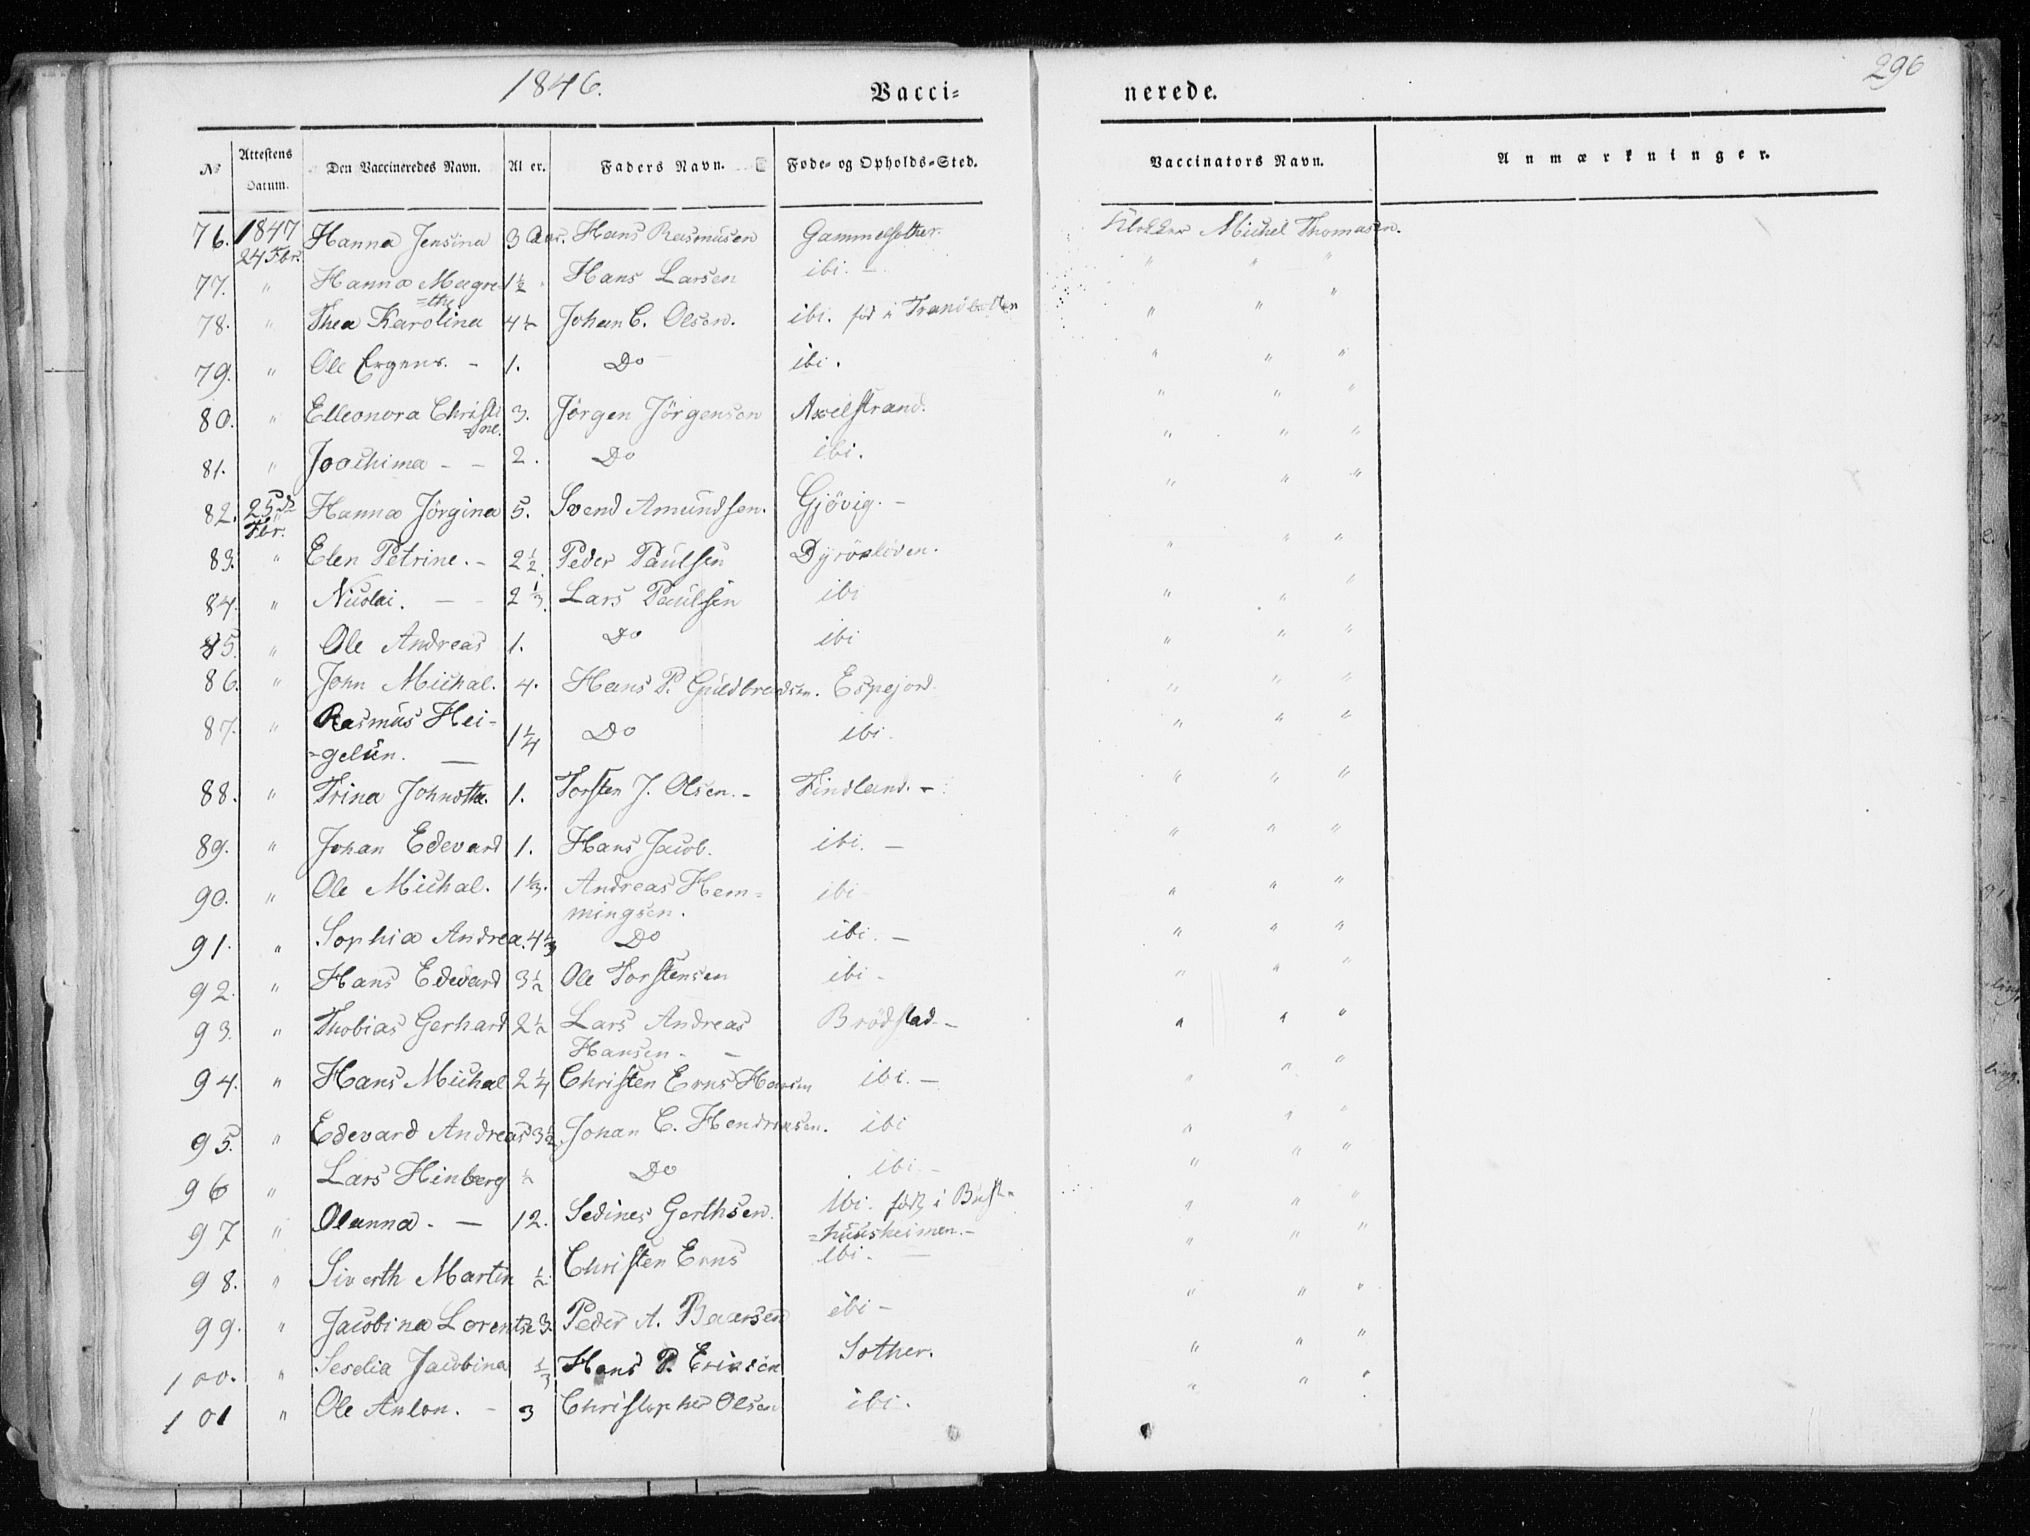 1846.
Vacci-
nerede.
296
No
Attestens Datum.
Den Vaccineredes Navn.
Al er.
Faders Navn.
Føde- og Opholds-Sted.
Vaccinators Navn.
Anmærkninger.
76. 1847 24 Fbr. Hanna Jensina 3 Aar. Hans Rasmusen Gammelsother. Klokker Michel Thomasen.
77. " Hanna Magre- 1½ " Hans Larsen ibi. – " " "
=the
78. " Thea Karolina 4½ Johan C. Olsen. ibi. fød i Tranbotten " " "
79. " Ole Ergens. – 1. Do ibi. " " "
80. " Elleonora Christi 3. Jörgen Jörgensen Axelstrand. " " "
=ne.
81. " Joachima – – 2. Do ibi. " " "
82. 25de Fbr. Hanna Jörgina 5. Svend Amundsen. Gjövig. – " " "
83. " Elen Petrine. – 2½ Peder Paulsen Dyröxloven. " " "
84. " Nicolai. – – 2⅓. Lars Paulsen ibi " " "
85. " Ole Andreas 1. Do ibi " " "
86. " John Michal. 4. Hans P. Guldbrandsen. Espejord. " " "
87. " Rasmus Hei- 1¼ Do ibi. " " "
=gelun. –
88. " Trina Johnotha. 1. Torsten J. Olsen. – Findland. – " " "
89. " Johan Edevard 1. Hans Jacob. ibi. – " " "
90. " Ole Michal. 1⅓. Andreas Hem- ibi – " " "
mingsen.
91. " Sophia Andrea. 4⅓ Do ibi. – " " "
92. " Hans Edevard 3½ Ole Torstensen ibi – " " "
93. " Thobias Gerhard 2½ Lars Andreas Brödstad. – " " "
Hansen. – –
94. " Hans Michal 2¼ Christen Erns Hansen ibi. – " " "
95. " Edevard Andreas 3½ Johan C. Hendriksen. ibi " " "
96 " Lars Hinberg ½ Do ibi. – " " "
97 " Olanna. – 12. Sedines Gerthsen. ibi. född i Bust- " " "
=huusheimen. –
98. " Siverth Martin ½. Christen Erns ibi. – " " "
99. " Jacobina Lorentse 3. Peder A. Baarsen ibi – " " "
100. " Seselia Jacobina ⅓ Hans P. Eriksen Sother. " " "
101 " Ole Anton. – 3 Christopher Olsen ibi. " " "